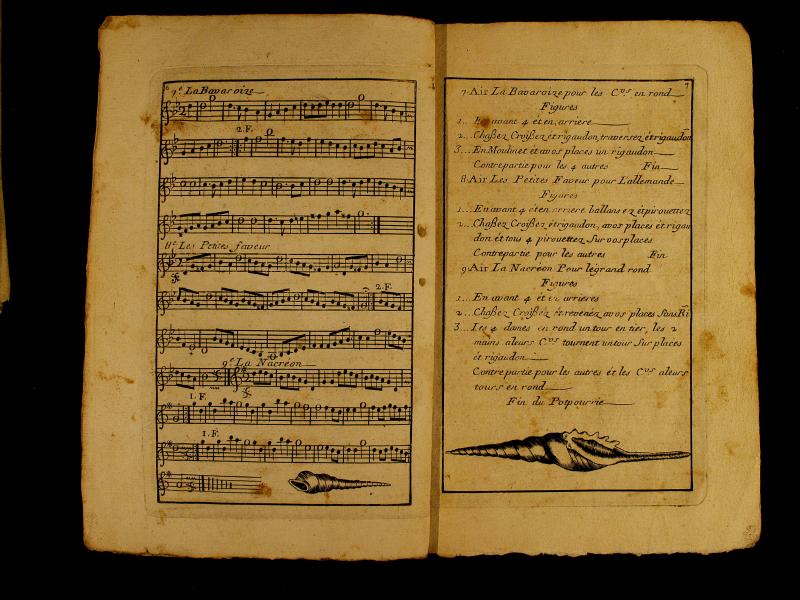 6
7.e La Bavaroize
2.F.
8.e Les Petites faveur
2.F.
9.e La Nacréon
1.F.
1.F.
7
7. Air La Bavaroize pour les C.vs en rond
Figures
1... En avant 4 et en arriere
2... Chaßez Croißez et rigaudon, traversez et rigaudon
3... En Moulinet et a vos places un rigaudon
Contrepartie pour les 4 autres Fin
8. Air Les Petites Faveur pour L'allemande
Figures
1... En avant 4 et en arriere ballans ez et pirouettez
2... Chaßez Croißez et rigaudon, a vos places et rigau
don et tous 4 pirouettez Sur vos places
Contrepartie pour les autres Fin
9. Air La Nacréon Pour le grand rond
Figures
1... En avant 4 et en arrieres
2... Chaßez Croißez et revenez a vos places Sans Ri
3... Les 4 dames en rond un tour en tier, les 2
mains a leurs C.vs tournent un tour Sur places
et rigaudon
Contrepartie pour les autres et les C.vs a leurs
tours en rond
Fin du Potpourrie